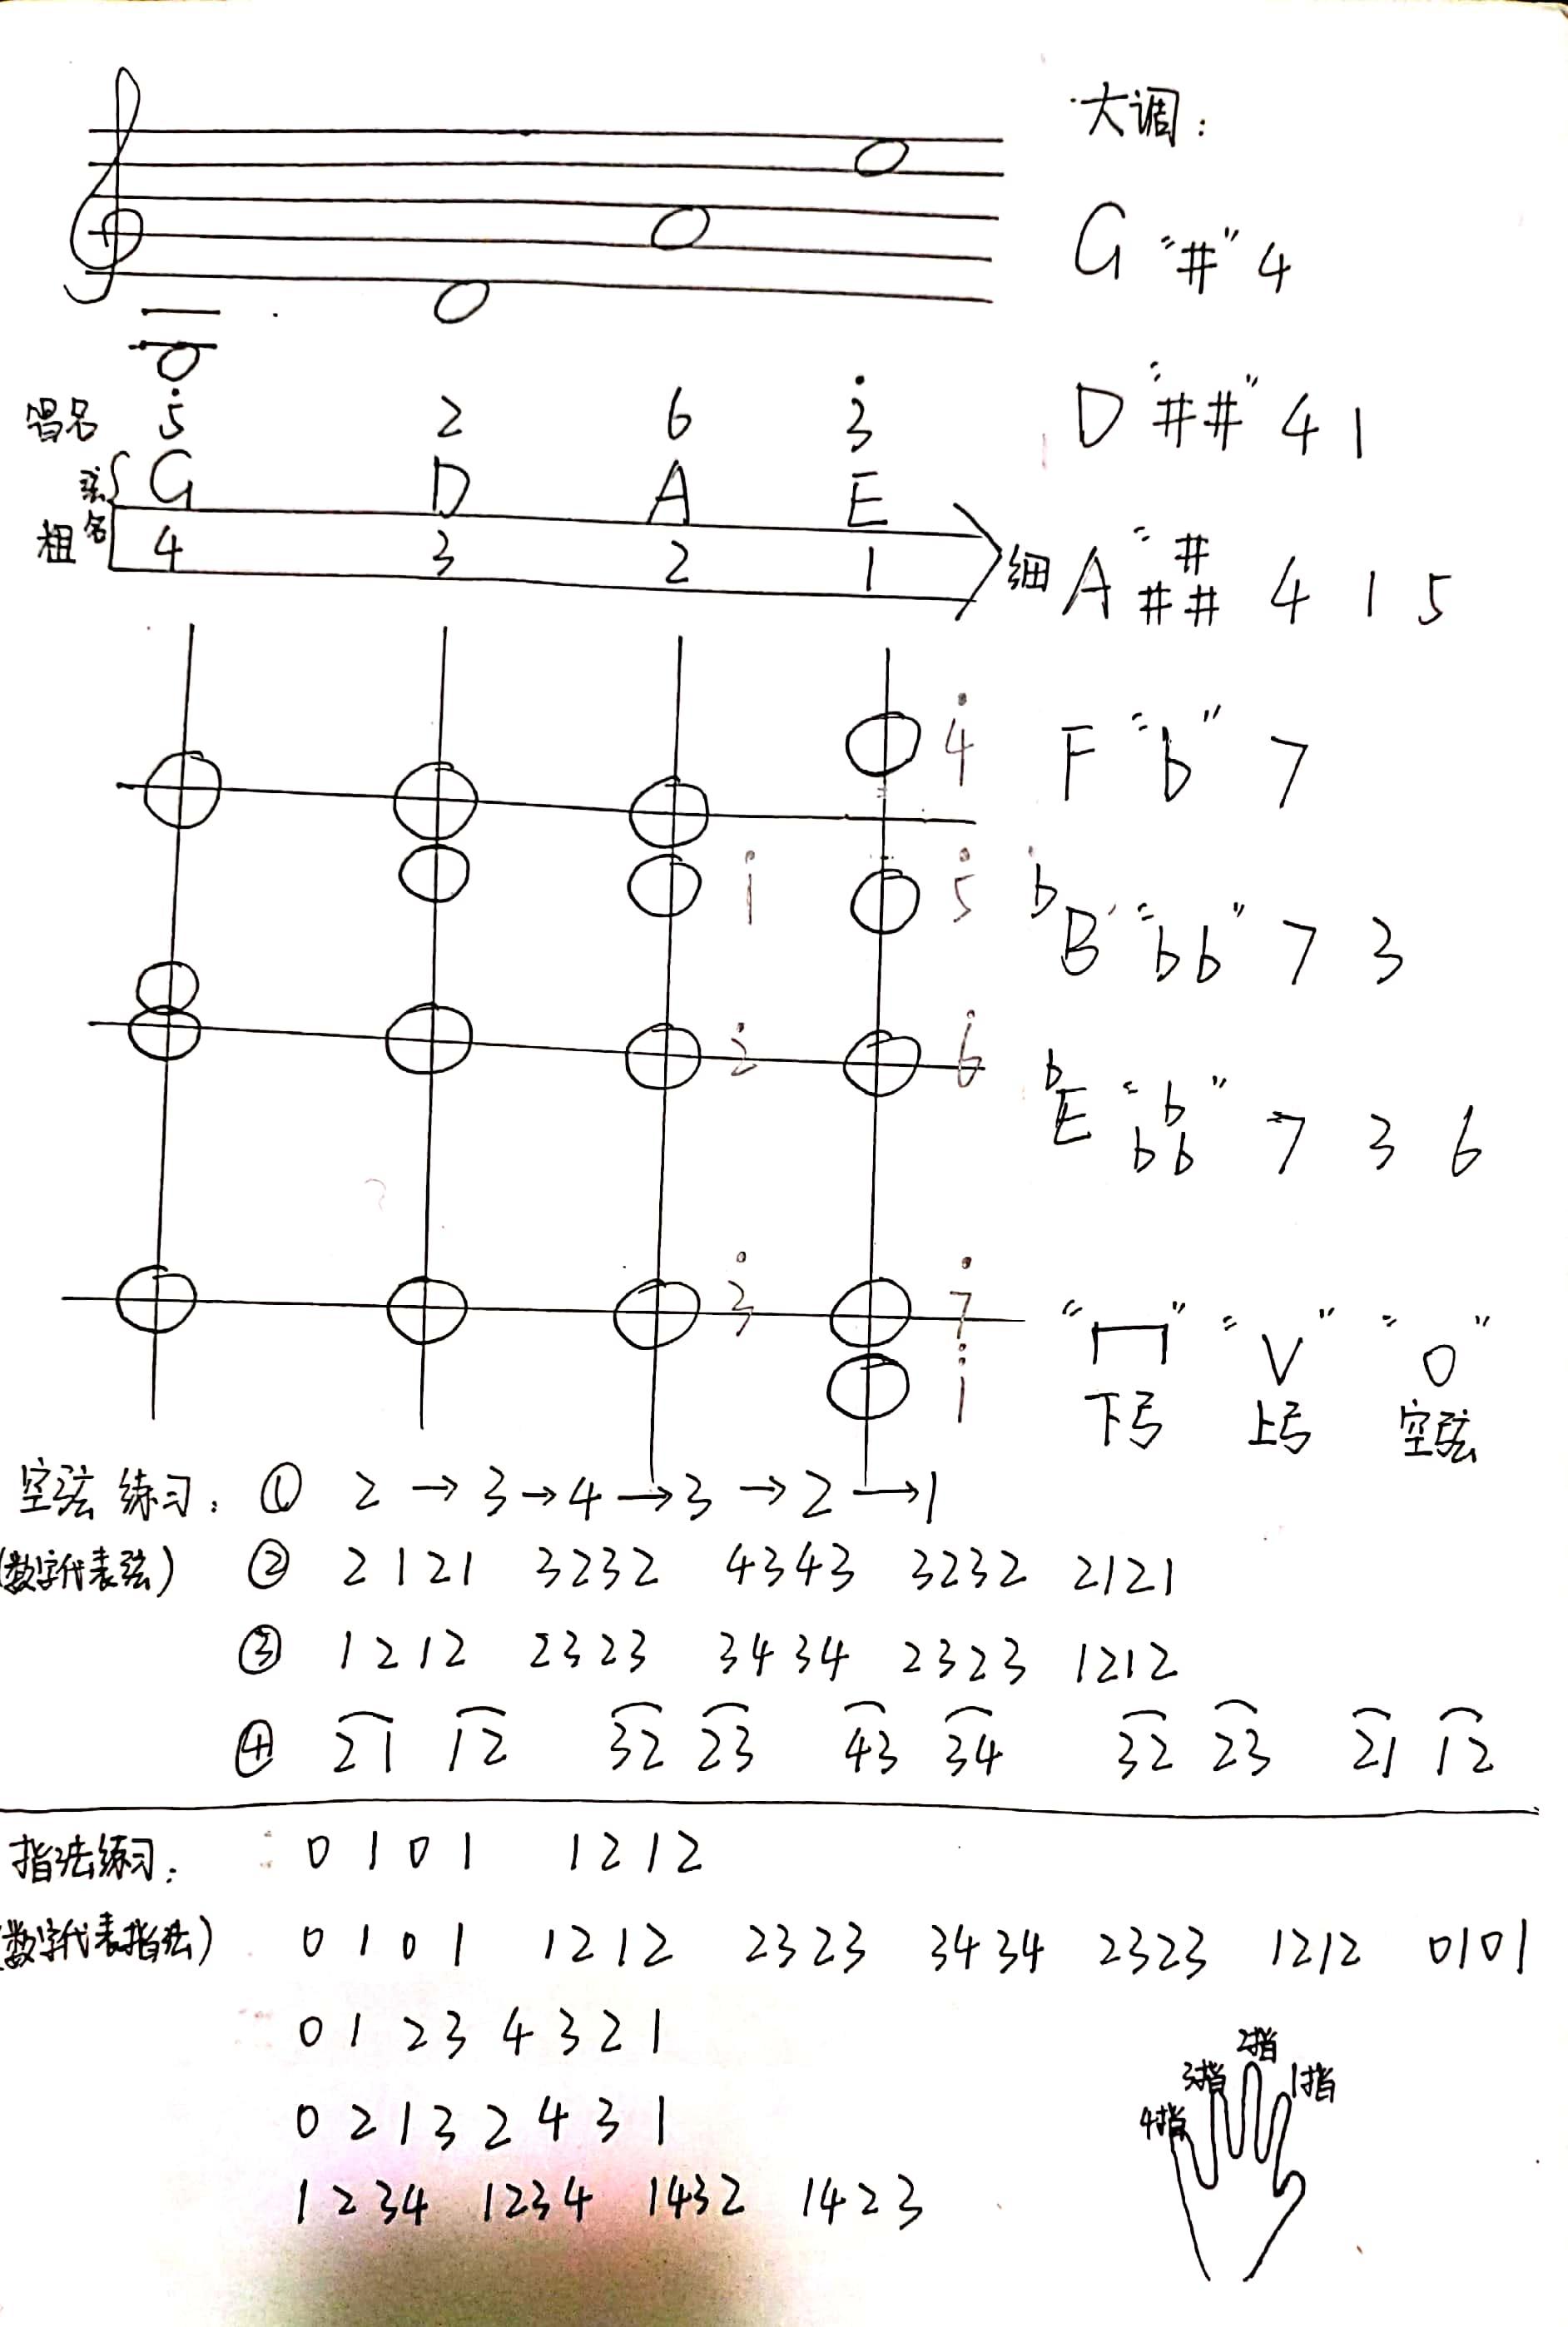 大调:
G "#" 4
唱名 5̇ 2 6 3̇
D "##" 4 1
弦名 G D A E
粗 4 3 2 1 细
A "###" 4 1 5
4̇
F "b" 7
1̇ 5̇
bB "bb" 7 3
2̇ 6̇
bE "bbb" 7 3 6
3̇ 7̇
1̈
"⊓" "V" "0"
下弓 上弓 空弦
空弦练习: ① 2→3→4→3→2→1
(数字代表弦) ② 2121 3232 4343 3232 2121
③ 1212 2323 3434 2323 1212
④ 21 12 32 23 43 34 32 23 21 12
指法练习: 0101 1212
(数字代表指法) 0101 1212 2323 3434 2323 1212 0101
0 1 2 3 4 3 2 1
0 2 1 3 2 4 3 1
1234 1234 1432 1423
2指
3指 1指
4指